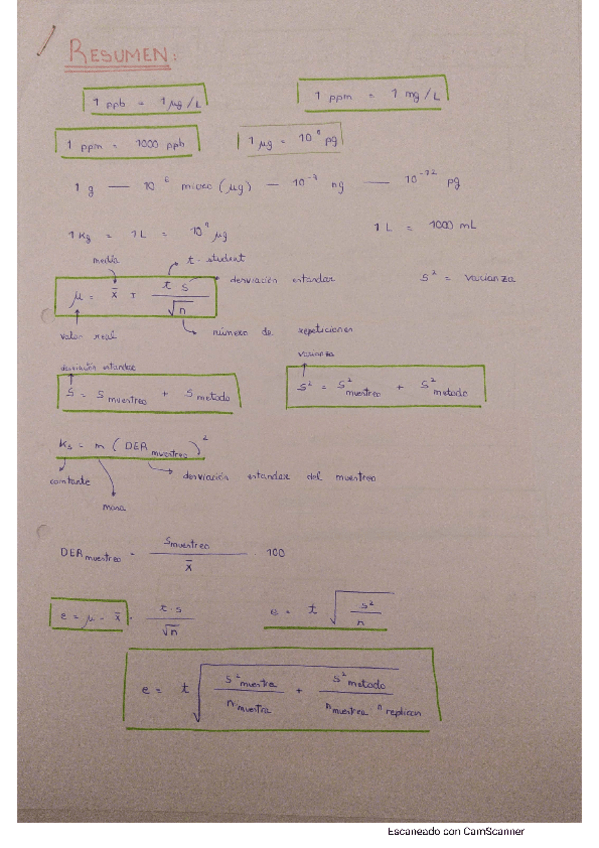 RESUMEN:
1 ppb = 1 μg/L
1 ppm = 1 mg/L
1 ppm = 1000 ppb
1 μg = 10⁶ pg
1 g — 10⁶ micro (μg) — 10⁻⁹ ng — 10⁻¹² pg
1 Kg = 1L = 10⁹ μg
1 L = 1000 mL
media
t-student
desviación estándar
S² = varianza
μ = x̄ ± t s / √n
valor real
número de repeticiones
desviación estandar
varianza
S = S muestreo + S metodo
S² = S² muestreo + S² metodo
Ks = m (DER muestreo)²
constante
desviación estandar del muestreo
masa
DER muestreo = S muestreo / x̄ · 100
e = μ - x̄ = t·s / √n
e = t √ s² / n
e = t √ S² muestra / n muestra + S² metodo / n muestra n replicas
Escaneado con CamScanner